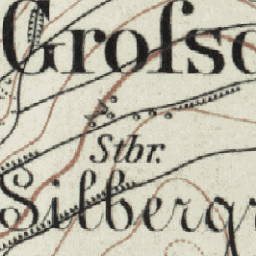 Grofso
Stbr.
Silbergr